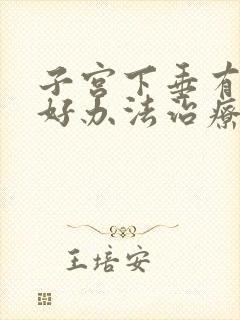 子宫下垂有
好办法治疗
王培安